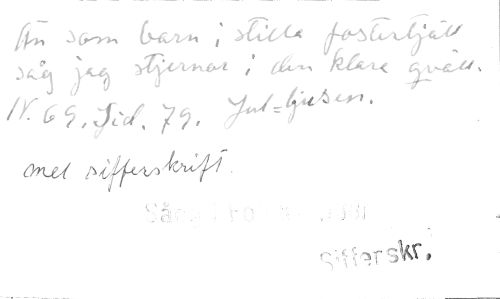 Än som barn i stilla fostertjäll
såg jag stjernor i den klara qväll.
N. 69. Sid. 79. Jul=ljusen.
mel sifferskrift.
Sifferskr.